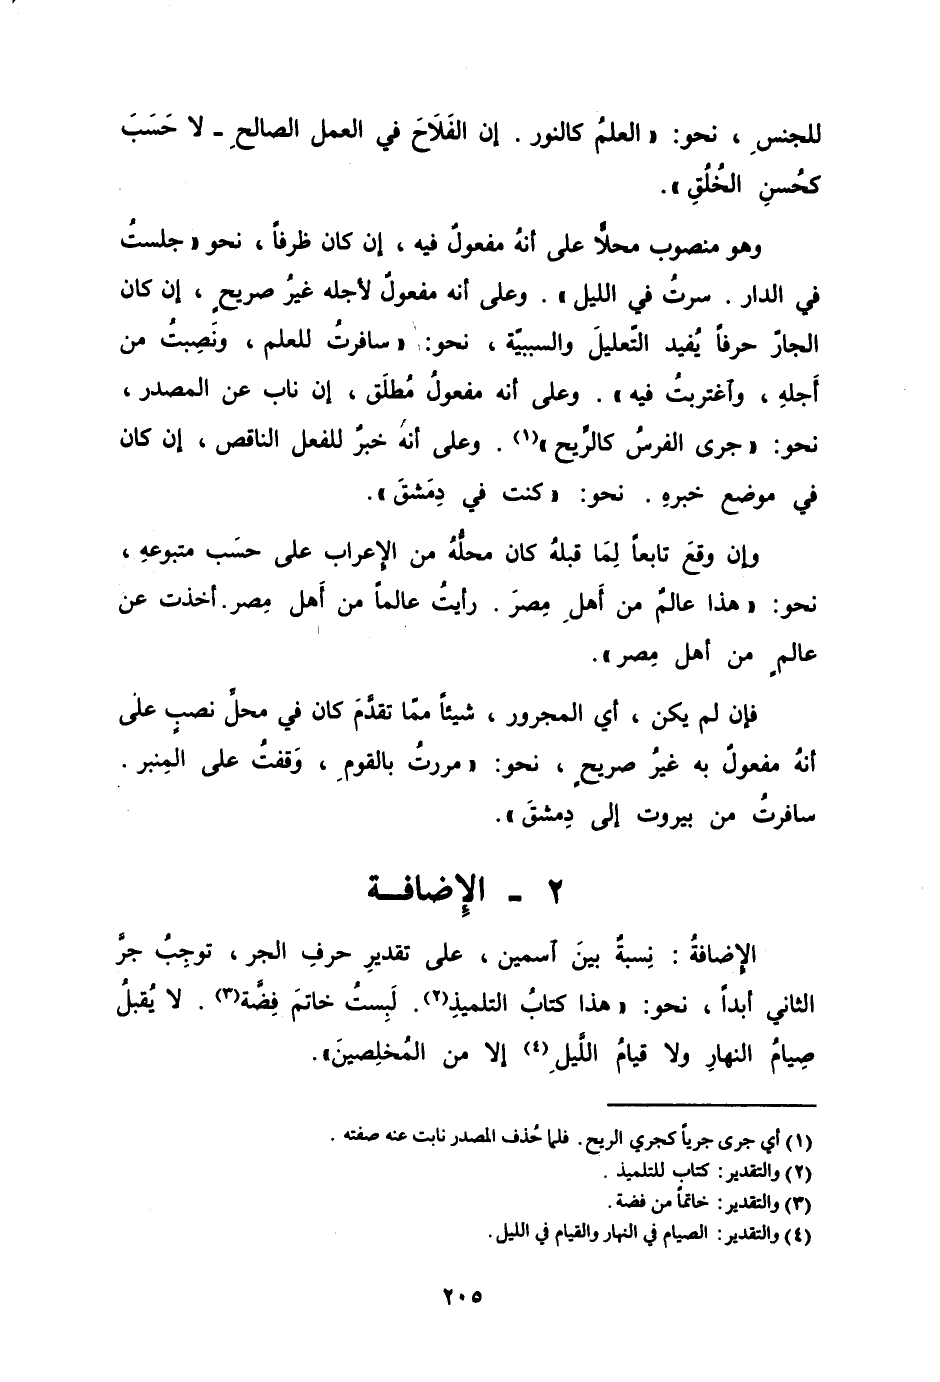 للجنسِ ، نحو: « العلمُ كالنور . إن الفَلَاحَ في العمل الصالحِ ـ لا حَسَبَ
كحُسنِ الخُلُقِ ».
وهو منصوب محلاًّ على أنهُ مفعولٌ فيه ، إن كان ظرفاً ، نحو « جلستُ
في الدار . سرتُ في الليل » . وعلى أنه مفعولٌ لأجله غيرُ صريحٍ ، إن كان
الجارّ حرفاً يُفيد التّعليلَ والسببيّة ، نحو: « سافرتُ للعلم ، ونَصِبتُ من
أَجلهِ ، وآغتربتُ فيه » . وعلى أنه مفعولُ مُطلَق ، إن ناب عن المصدر ،
نحو: « جرى الفرسُ كالرِّيح »(١) . وعلى أنهُ خبرٌ للفعل الناقص ، إن كان
في موضع خبرهِ . نحو: « كنت في دِمَشقَ ».
وإن وقعَ تابعاً لِمَا قبلهُ كان محلُّهُ من الإعراب على حسَب متبوعهِ ،
نحو: « هذا عالمٌ من أَهلِ مِصرَ . رأيتُ عالماً من أَهل مِصر. أخذت عن
عالمٍ من أهل مِصر ».
فإن لم يكن ، أي المجرور ، شيئاً ممّا تقدَّمَ كان في محلِّ نصبٍ على
أنهُ مفعولٌ به غيرُ صريحٍ ، نحو: « مررتُ بالقومِ ، وَقفتُ على المِنبر .
سافرتُ من بيروت إلى دِمشقَ ».
٢ ـ الإِضافـة
الإِضافةُ : نِسبةٌ بينَ آسمين ، على تقديرِ حرفِ الجر ، توجِبُ جرَّ
الثاني أبداً ، نحو: « هذا كتابُ التلميذِ(٢). لَبِستُ خاتمَ فِضَّة(٣) . لا يُقبلُ
صِيامُ النهارِ ولا قيامُ اللَّيلِ(٤) إلا من المُخلِصينَ».
(١) أي جرى جرياً كجري الريح . فلما حُذف المصدر نابت عنه صفته .
(٢) والتقدير: كتاب للتلميذ .
(٣) والتقدير: خاتماً من فضة .
(٤) والتقدير: الصيام في النهار والقيام في الليل .
٢٠٥